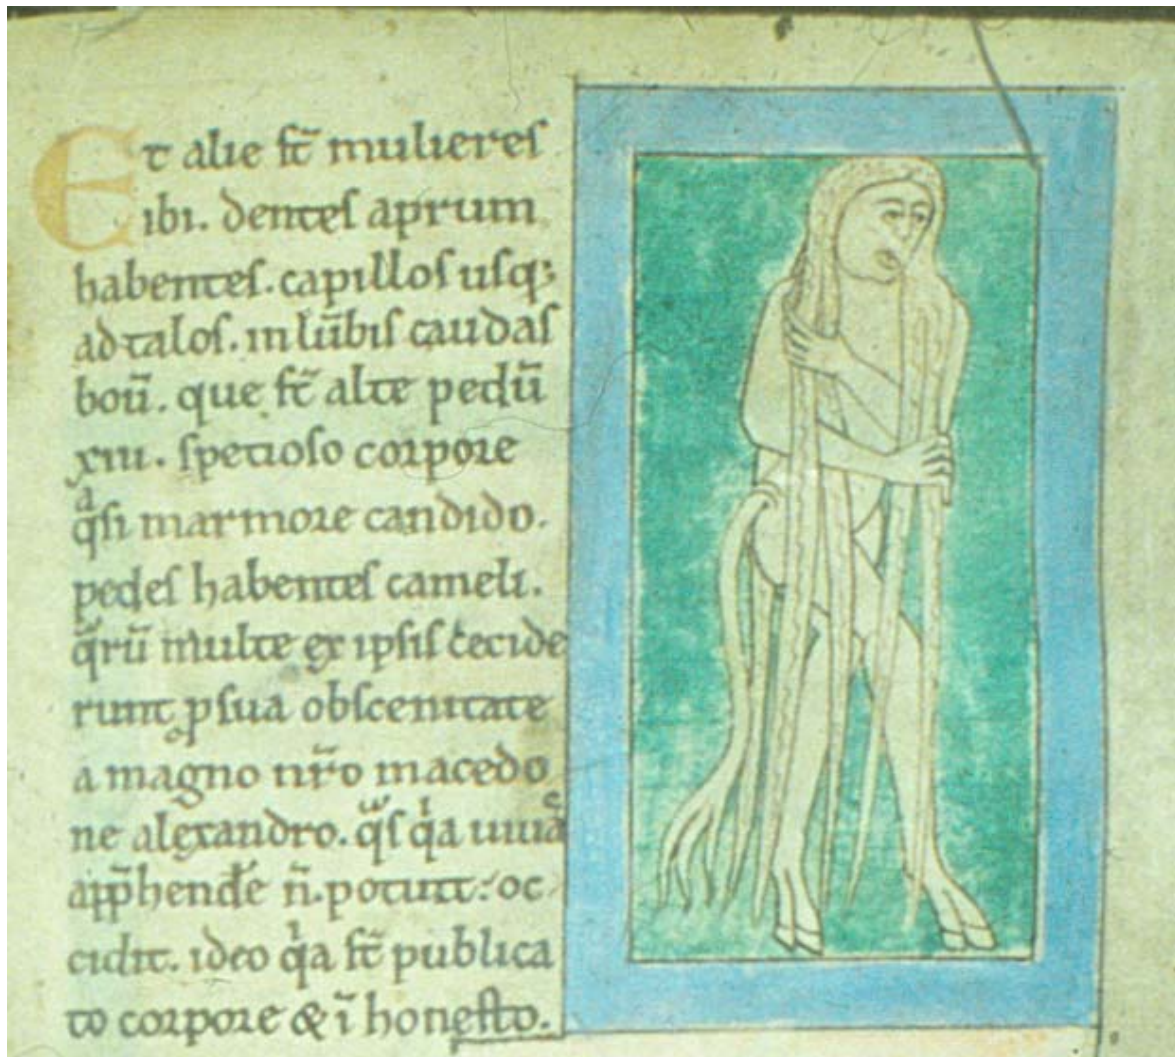 Et alie st̄ mulieres
ibi. dentes aprum
habentes. capillos usq;
ad talos. in lūbis caudas
boū. que st̄ alte pedū
xiii. spetioso corpore
qͣsi marmore candido.
pedes habentes cameli.
q̄rū multe ex ipsis cecide
runt ꝓ sua obscenitate
a magno nr̄o macedo
ne alexandro. qͣs qͥa uiuā
app̄hendē n̄. potuit: oc
cidit. ideo qͥa st̄ publica
to corpore & ī honesto.